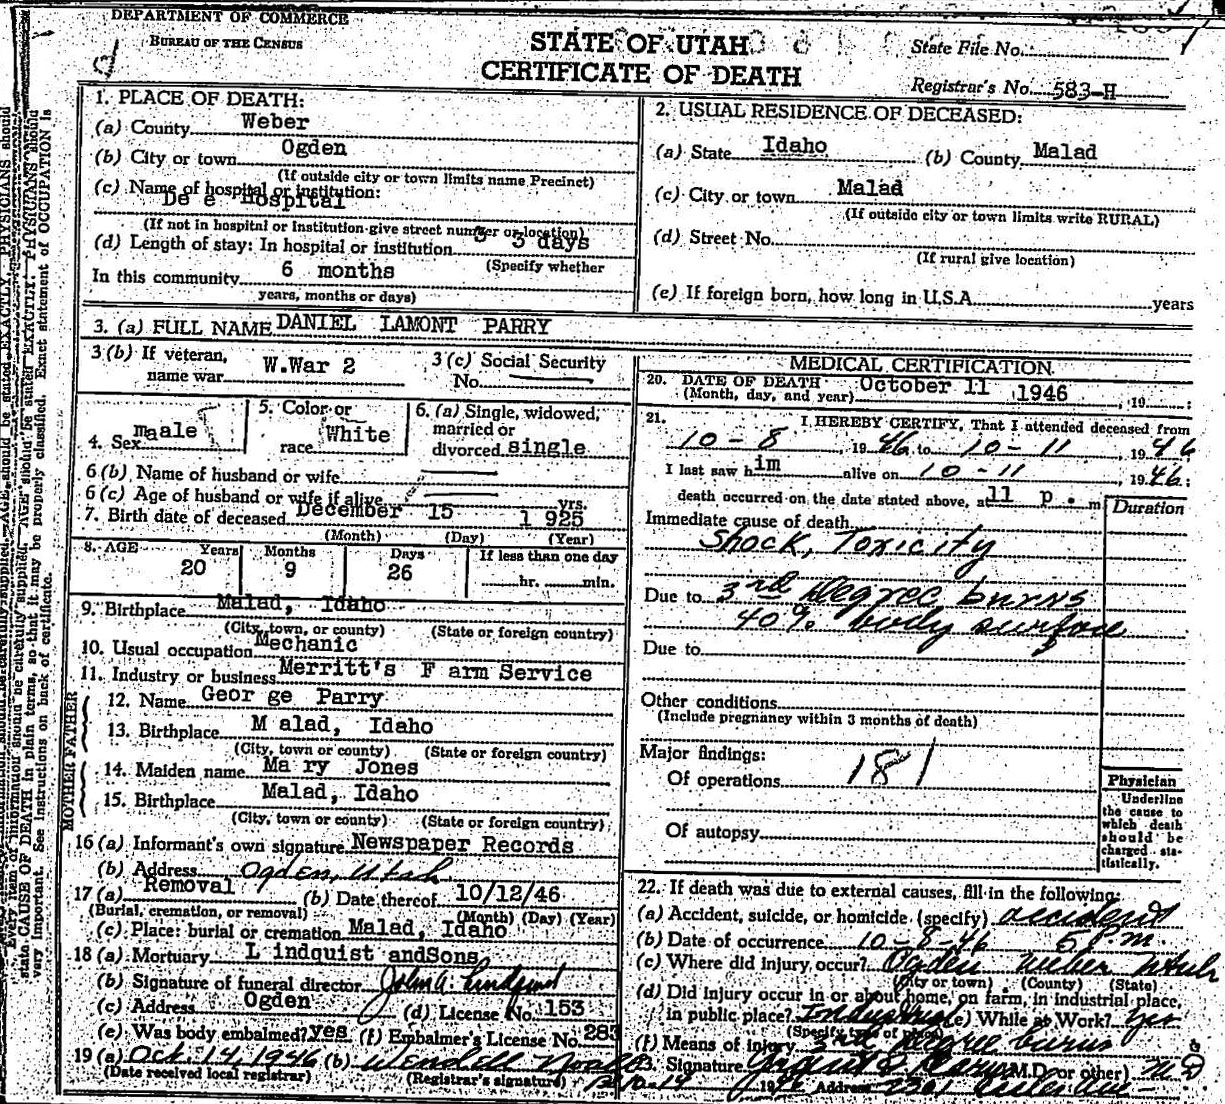 DEPARTMENT OF COMMERCE
BUREAU OF THE CENSUS
STATE OF UTAH
CERTIFICATE OF DEATH
State File No.
Registrar's No. 583-H
1. PLACE OF DEATH:
(a) County Weber
(b) City or town Ogden
(If outside city or town limits name Precinct)
(c) Name of hospital or institution:
De e Hospital
(If not in hospital or institution give street number or location)
(d) Length of stay: In hospital or institution 3 days
(Specify whether
In this community 6 months
years, months or days)
2. USUAL RESIDENCE OF DECEASED:
(a) State Idaho (b) County Malad
(c) City or town Malad
(If outside city or town limits write RURAL)
(d) Street No.
(If rural give location)
(e) If foreign born, how long in U.S.A. years
3. (a) FULL NAME DANIEL LAMONT PARRY
3 (b) If veteran, name war W.War 2
3 (c) Social Security No.
4. Sex maale
5. Color or race White
6. (a) Single, widowed, married or divorced single
6 (b) Name of husband or wife
6 (c) Age of husband or wife if alive yrs.
7. Birth date of deceased December 15 1 925
(Month) (Day) (Year)
8. AGE Years Months Days If less than one day
20 9 26 hr. min.
9. Birthplace Malad, Idaho
(City, town, or county) (State or foreign country)
10. Usual occupation Mechanic
11. Industry or business Merritt's F arm Service
FATHER
12. Name Geor ge Parry
13. Birthplace M alad, Idaho
(City, town or county) (State or foreign country)
MOTHER
14. Maiden name Ma ry Jones
15. Birthplace Malad, Idaho
(City, town or county) (State or foreign country)
16 (a) Informant's own signature Newspaper Records
(b) Address Ogden, Utah
17 (a) Removal (b) Date thereof 10/12/46
(Burial, cremation, or removal) (Month) (Day) (Year)
(c) Place: burial or cremation Malad, Idaho
18 (a) Mortuary L indquist andSons
(b) Signature of funeral director John A. Lindquist
(c) Address Ogden (d) License No. 153
(e) Was body embalmed? yes (f) Embalmer's License No. 283
19 (a) Oct. 14, 1946 (b) Wendell
(Date received local registrar) (Registrar's signature)
MEDICAL CERTIFICATION
20. DATE OF DEATH October 11 1946, 19
(Month, day, and year)
21. I HEREBY CERTIFY, That I attended deceased from
10-8, 1946 to 10-11, 1946
I last saw h im alive on 10-11, 1946;
death occurred on the date stated above, at 11 p. m
Duration
Immediate cause of death
Shock, Toxicity
Due to 3rd Degree burns
40% body surface
Due to
Other conditions
(Include pregnancy within 3 months of death)
Major findings:
Of operations
181
Of autopsy
Physician
Underline the cause to which death should be charged statistically.
22. If death was due to external causes, fill in the following:
(a) Accident, suicide, or homicide (specify) accident
(b) Date of occurrence 10-8-46 5 P.m.
(c) Where did injury occur? Ogden Weber Utah
(City or town) (County) (State)
(d) Did injury occur in or about home, on farm, in industrial place,
in public place? Industrial (e) While at Work? yes
(Specify type of place)
(f) Means of injury 3rd degree burns
23. Signature M.D. or other) M D
Address